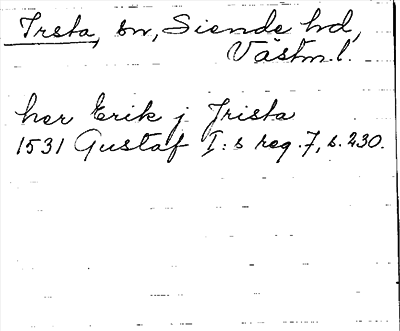 Irsta, sn, Siende hd,
Västm.l.
her Erik j Jrista
1531 Gustaf I:s reg. 7, s. 230.